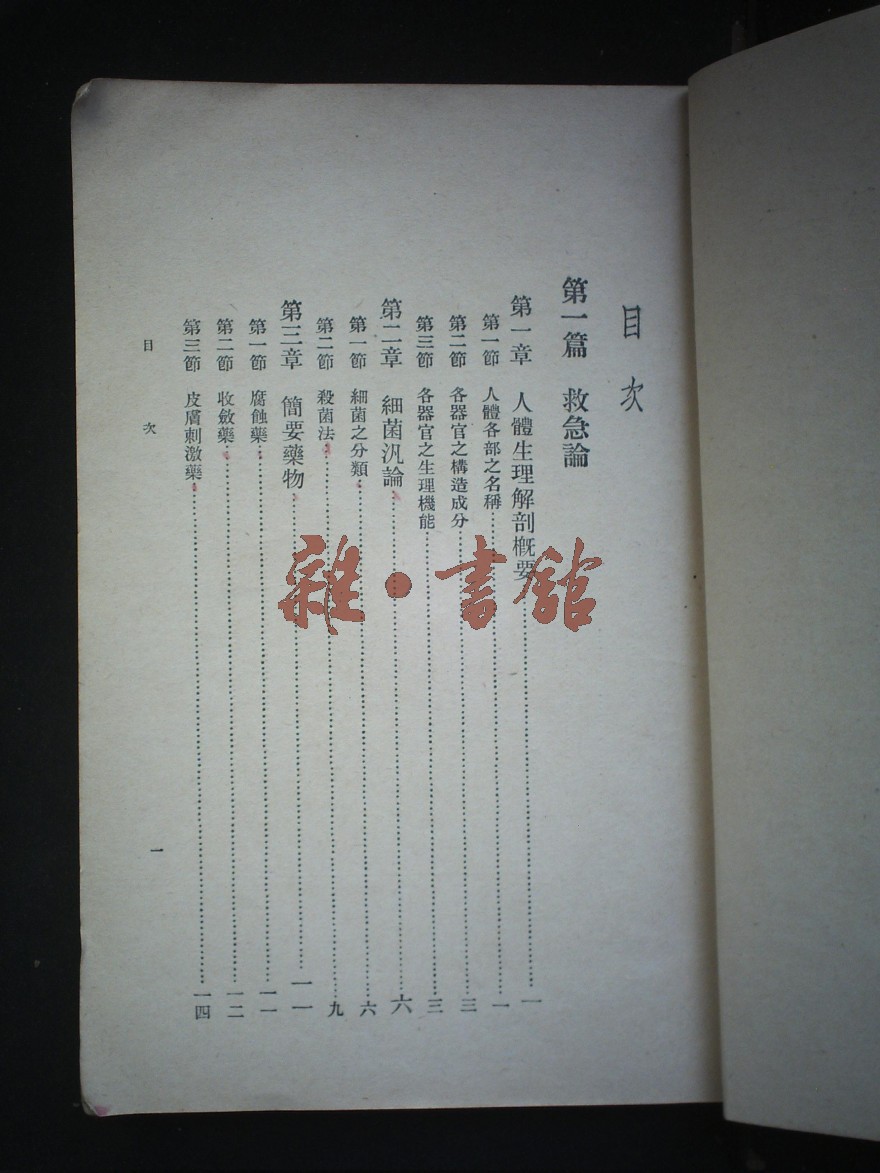 目次
第一篇 救急論
第一章 人體生理解剖概要……一
第一節 人體各部之名稱……一
第二節 各器官之構造成分……三
第三節 各器官之生理機能……三
第二章 細菌汎論……六
第一節 細菌之分類……六
第二節 殺菌法……九
第三章 簡要藥物……一一
第一節 腐蝕藥……一一
第二節 收斂藥……一二
第三節 皮膚刺激藥……一四
目次 一
雜·書館